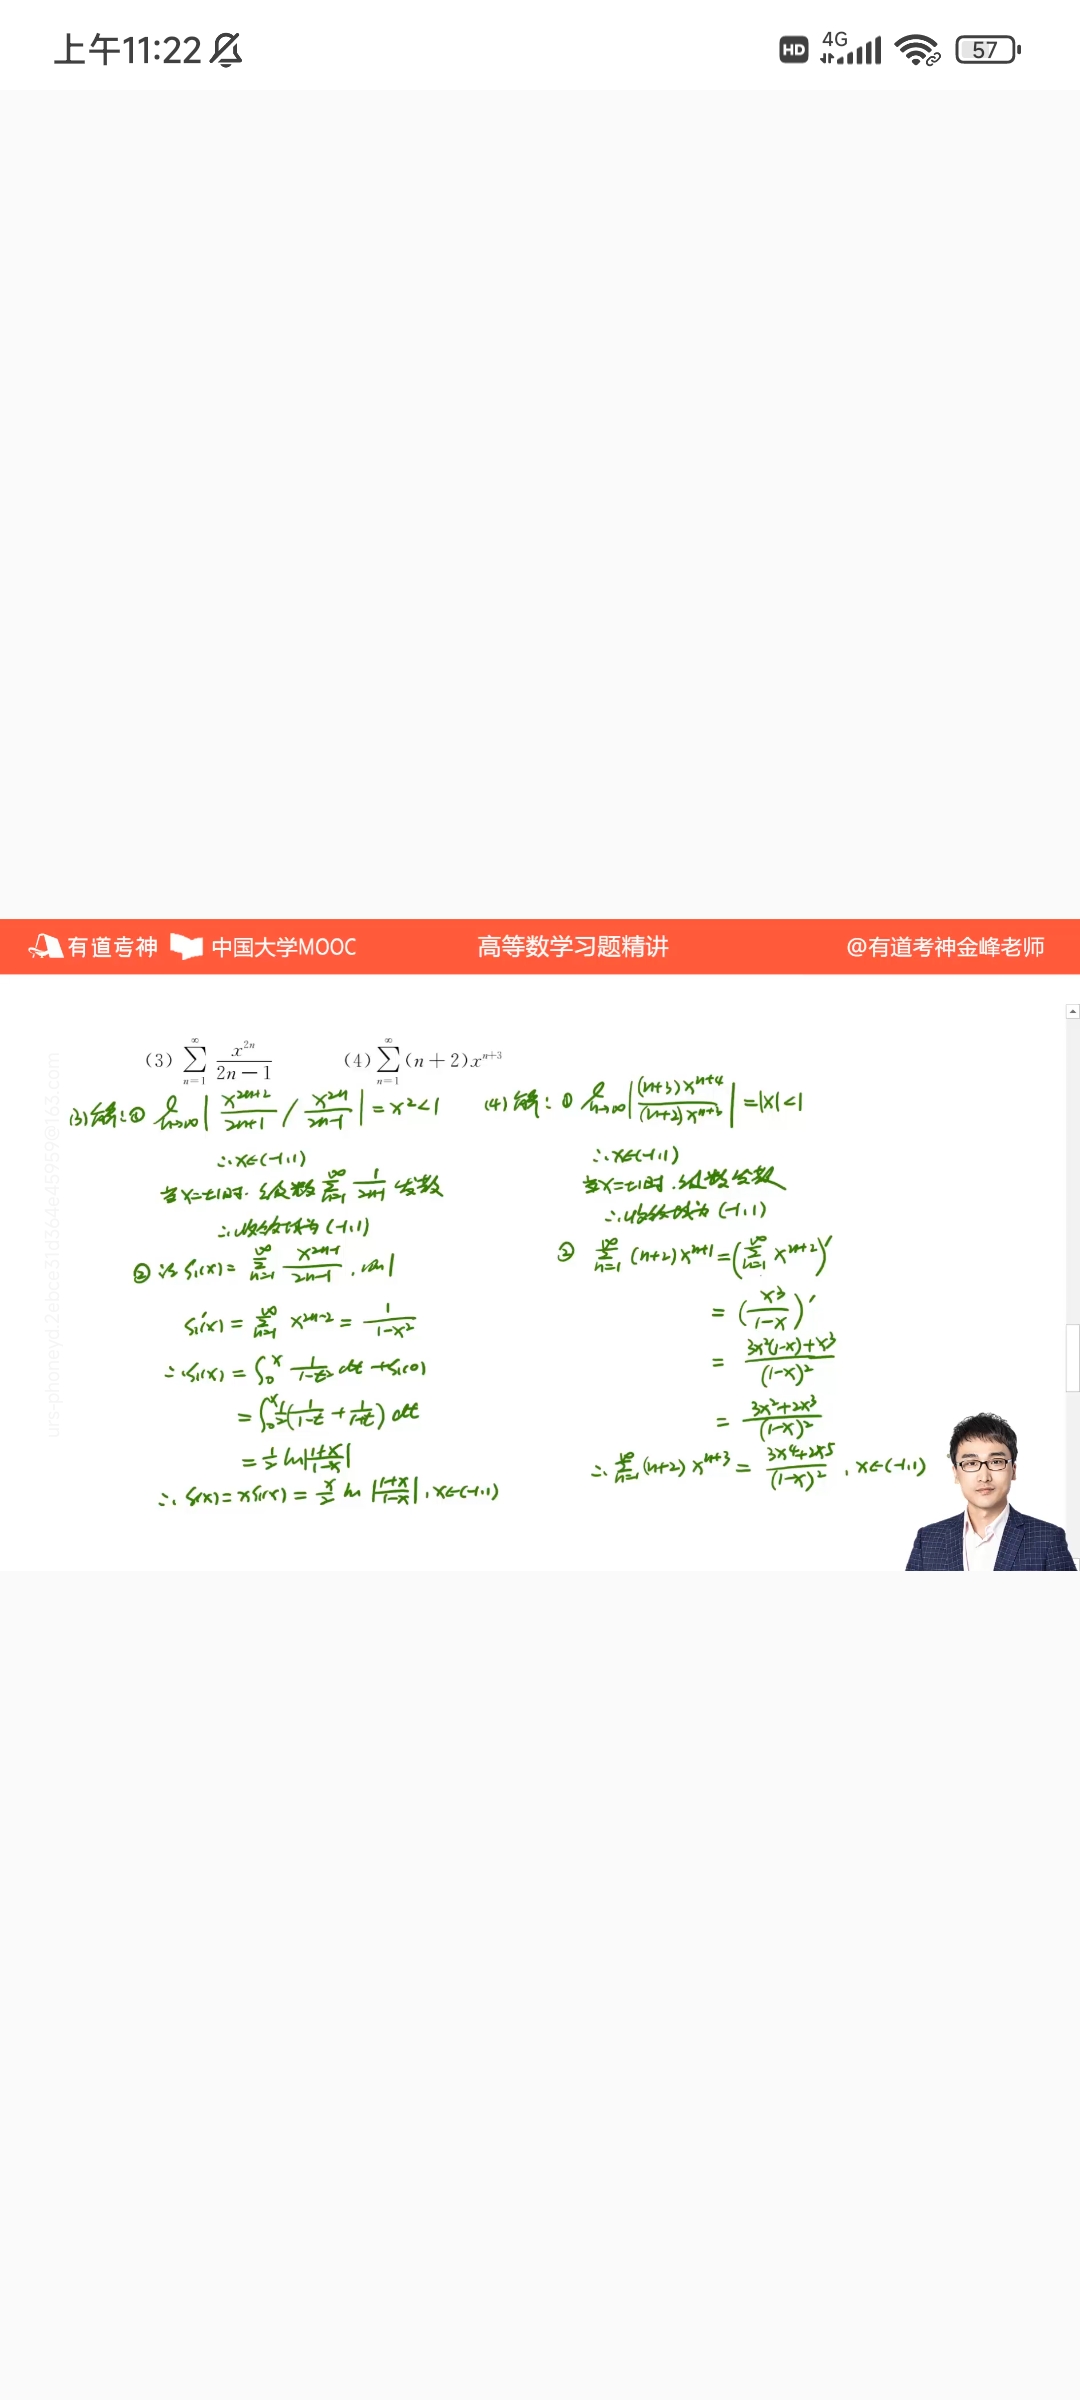 上午11:22 HD 4G 57
有道考神 中国大学MOOC 高等数学习题精讲 @有道考神金峰老师
(3) ∑_{n=1}^{∞} x^{2n}/(2n−1) (4) ∑_{n=1}^{∞} (n+2)x^{n+3}
(3)解:① lim_{n→∞} | x^{2n+2}/(2n+1) / x^{2n}/(2n-1) | = x²<1
∴x∈(-1,1)
当x=±1时,级数 ∑_{n=1}^{∞} 1/(2n-1) 发散
∴收敛域为(-1,1)
② 设S₁(x)= ∑_{n=1}^{∞} x^{2n-1}/(2n-1),
S₁'(x) = ∑_{n=1}^{∞} x^{2n-2} = 1/(1-x²)
∴S₁(x) = ∫₀^x 1/(1-t²) dt +S₁(0)
= ∫₀^x ½(1/(1-t) + 1/(1+t)) dt
= ½ ln|(1+x)/(1-x)|
∴ S(x)=xS₁(x) = x/2 ln |(1+x)/(1-x)|, x∈(-1,1)
(4)解:① lim_{n→∞} | (n+3)x^{n+4}/(n+2)x^{n+3} | =|x|<1
∴x∈(-1,1)
当x=±1时,级数发散
∴收敛域为(-1,1)
② ∑_{n=1}^{∞} (n+2)x^{n+1} = (∑_{n=1}^{∞} x^{n+2})'
= (x³/(1-x))'
= (3x²(1-x)+x³)/(1-x)²
= (3x²+2x³)/(1-x)²
∴ ∑_{n=1}^{∞} (n+2)x^{n+3} = (3x⁴+2x⁵)/(1-x)², x∈(-1,1)
urs-phoneyd.2ebce31d364e45959@163.com